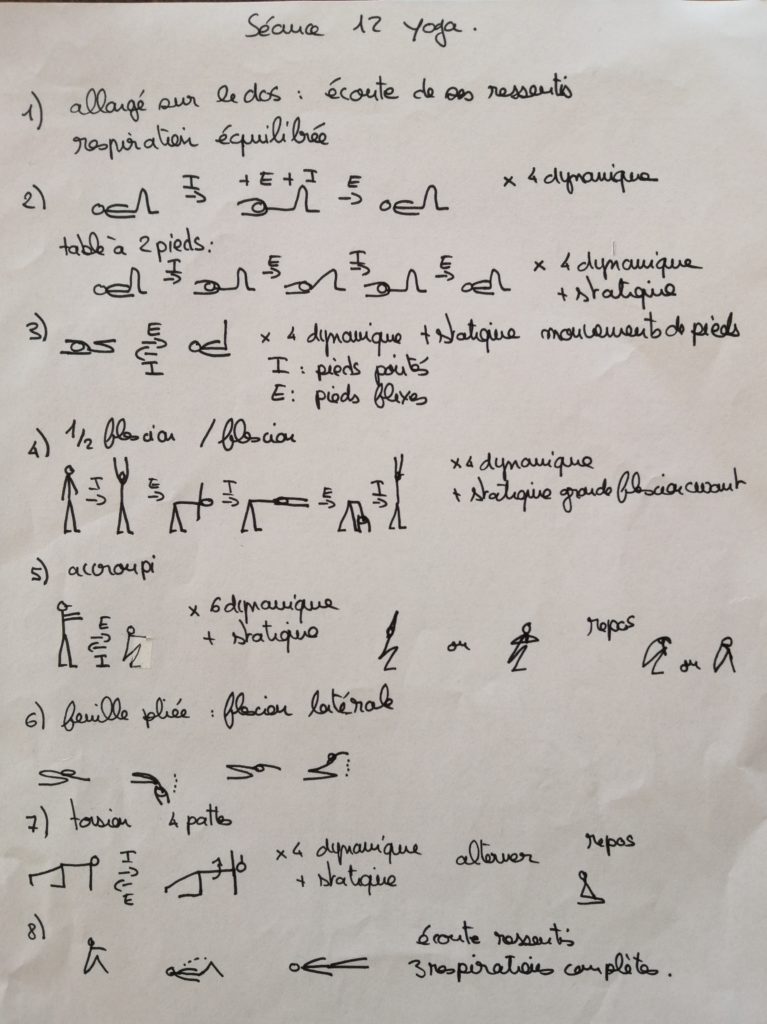 Séance 12 yoga.
1) allongé sur le dos : écoute de ses ressentis
respiration équilibrée
2) I + E + I E × 4 dynamique
table à 2 pieds :
I E I E × 4 dynamique
+ statique
3) E I × 4 dynamique + statique mouvements de pieds
I : pieds pointés
E : pieds flexes
4) 1/2 flexion / flexion
I E I E I × 4 dynamique
+ statique grande flexion avant
5) accroupi
E I × 6 dynamique
+ statique ou repos ou
6) feuille pliée : flexion latérale
7) torsion 4 pattes
I E × 4 dynamique alterner repos
+ statique
8) écoute ressentis
3 respirations complètes.